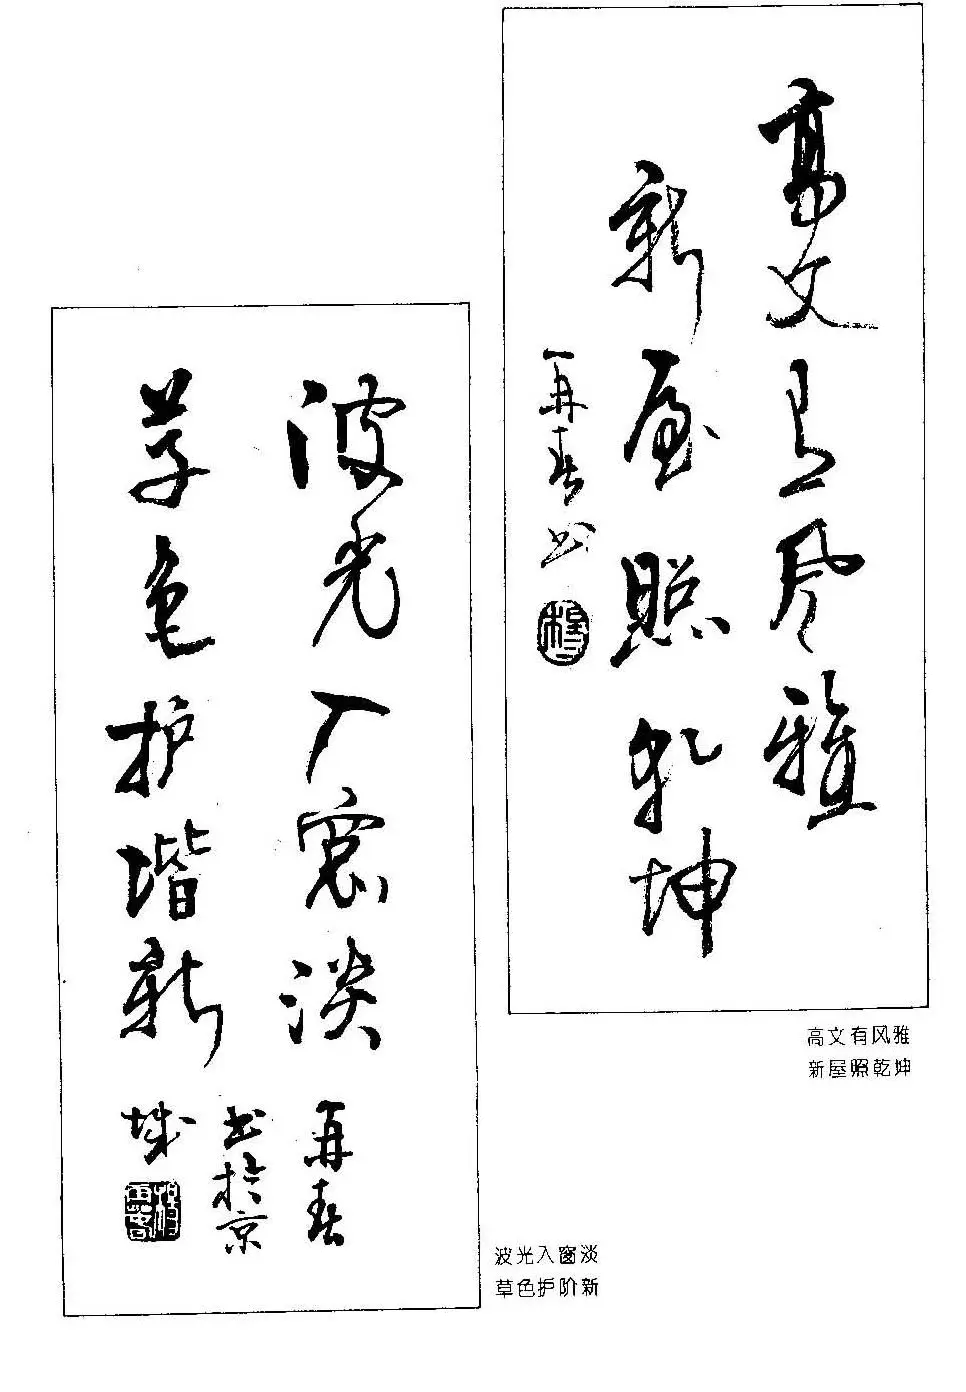 高文有风雅
新屋照乾坤
再春书
高文有风雅
新屋照乾坤
波光入窗淡
草色护堦新
再春
书於京
城
波光入窗淡
草色护阶新